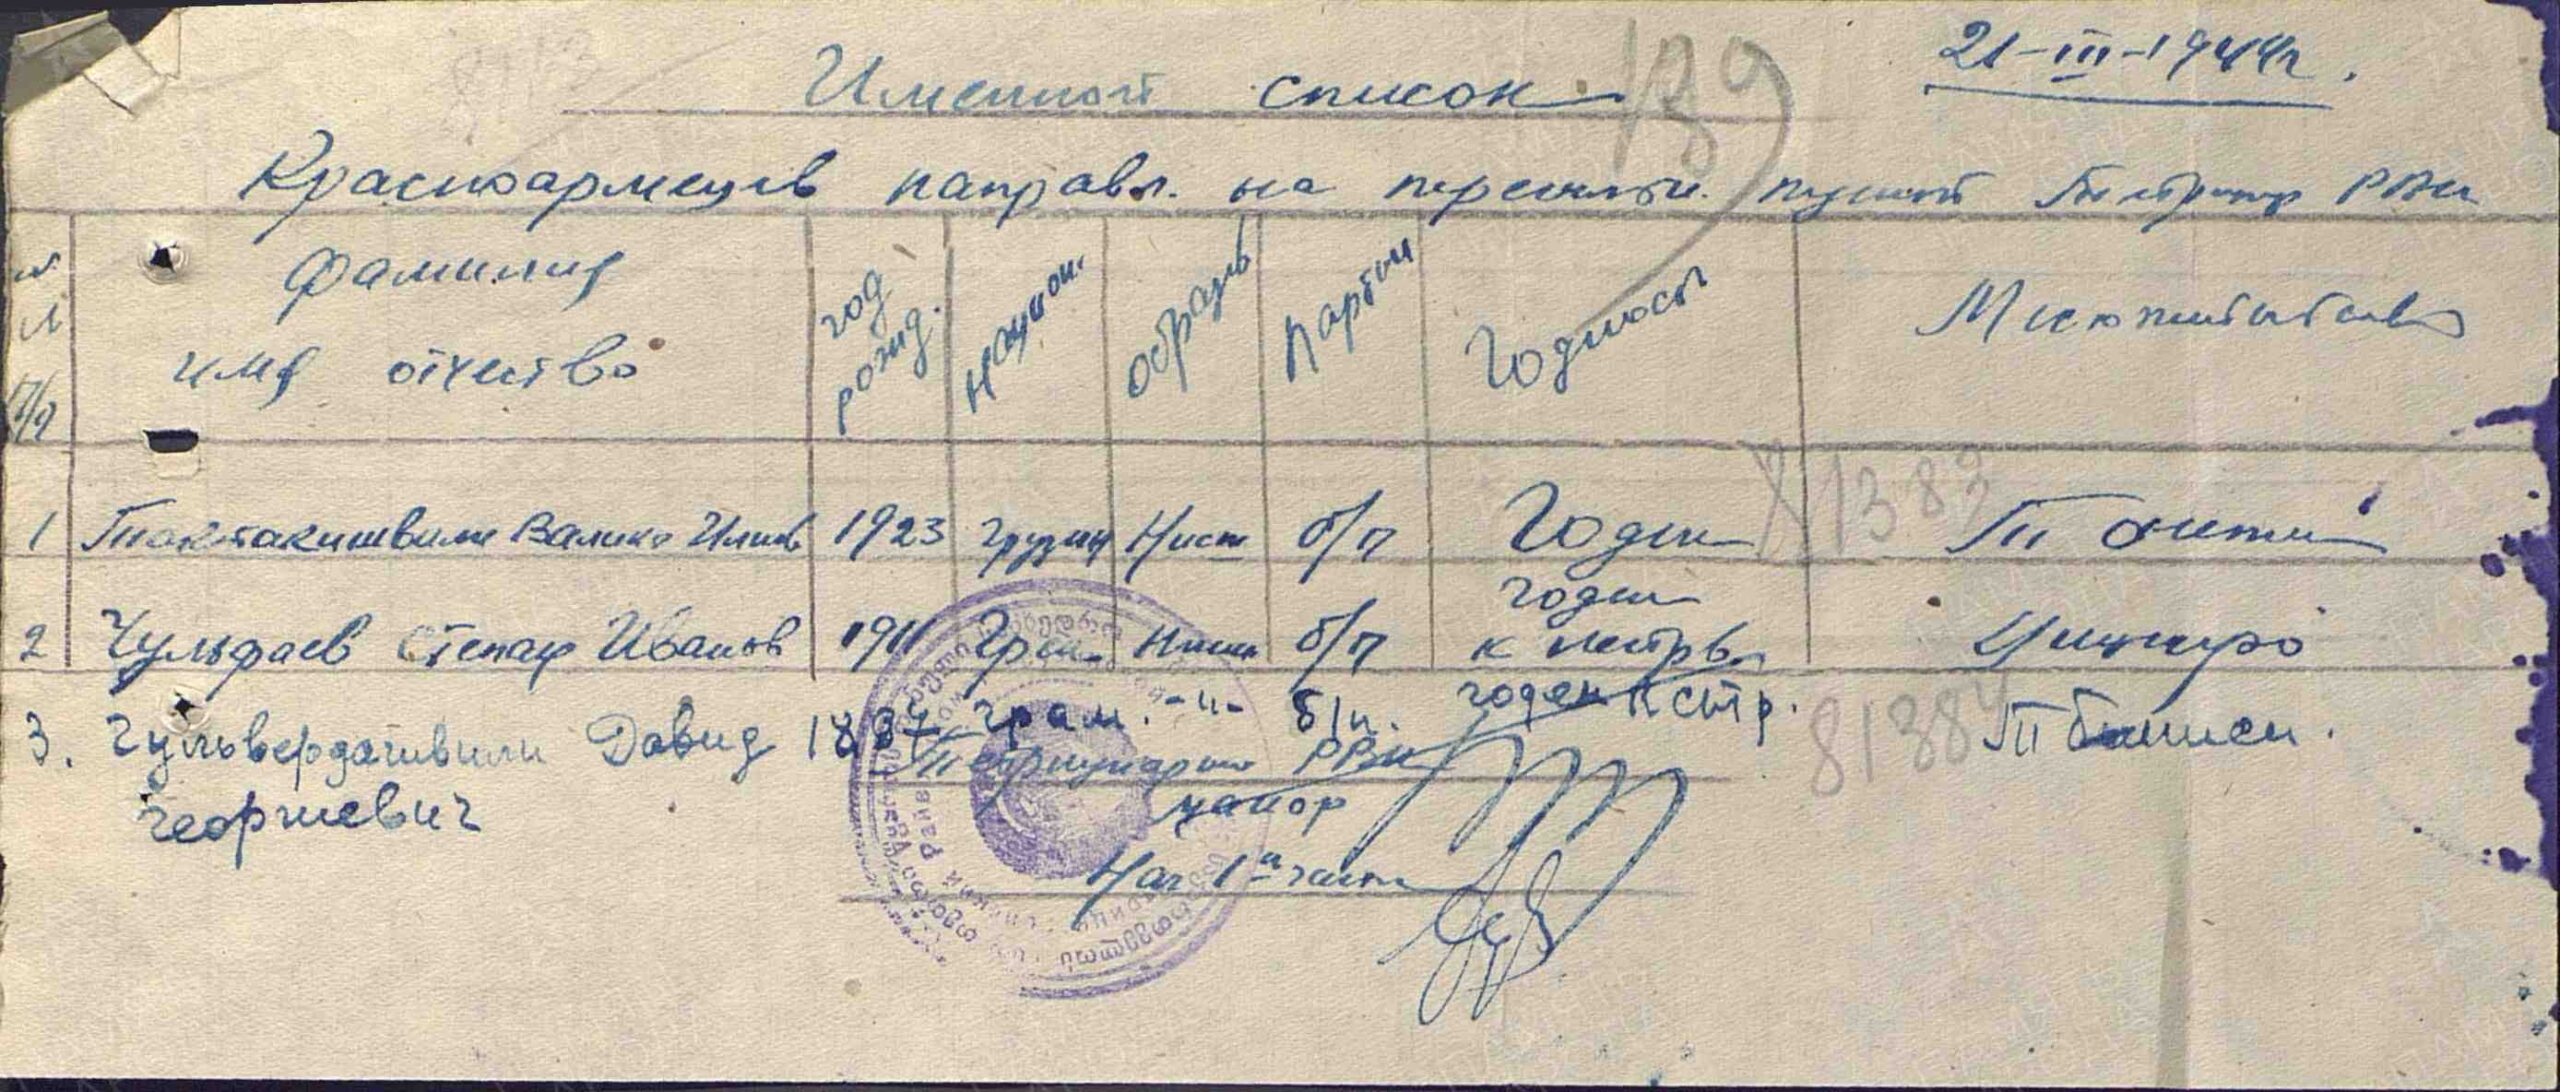 21-III-1944г.
Именной список
189
Красноармейцев направл. на пересыльн. пункт РВК
№ п/п
Фамилия имя отчество
год рожд.
национ.
образов
Партии
Годность
Местожительство
1 Тактакишвили Валико Илиев 1923 грузин Низш б/п Годен
81383
2 Чульфаев Степан Иванов 1911 Низш б/п годен к нестр.
3. Давид Георгиевич 1887 грам. -"- б/п. годен к стр. Тбилиси.
81384
РВК
майор
Нач 1й части